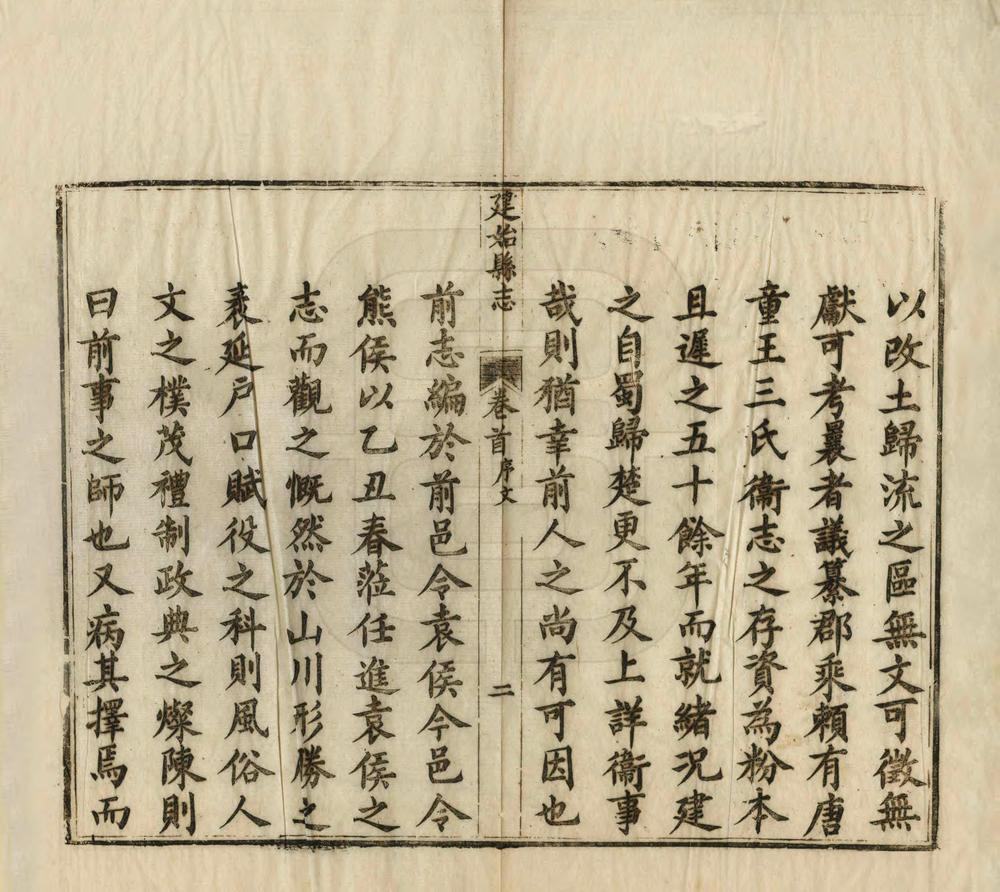 以改土歸流之區無文可徵無
獻可考曩者議纂郡乘賴有唐
童王三氏衞志之存資為粉本
且遲之五十餘年而就緒況建
之自蜀歸楚更不及上詳衞事
哉則猶幸前人之尚有可因也
建始縣志
卷首
序文
二
前志編於前邑令袁侯今邑令
熊侯以乙丑春蒞任進袁侯之
志而觀之慨然於山川形勝之
袤延戶口賦役之科則風俗人
文之樸茂禮制政典之燦陳則
曰前事之師也又病其擇焉而